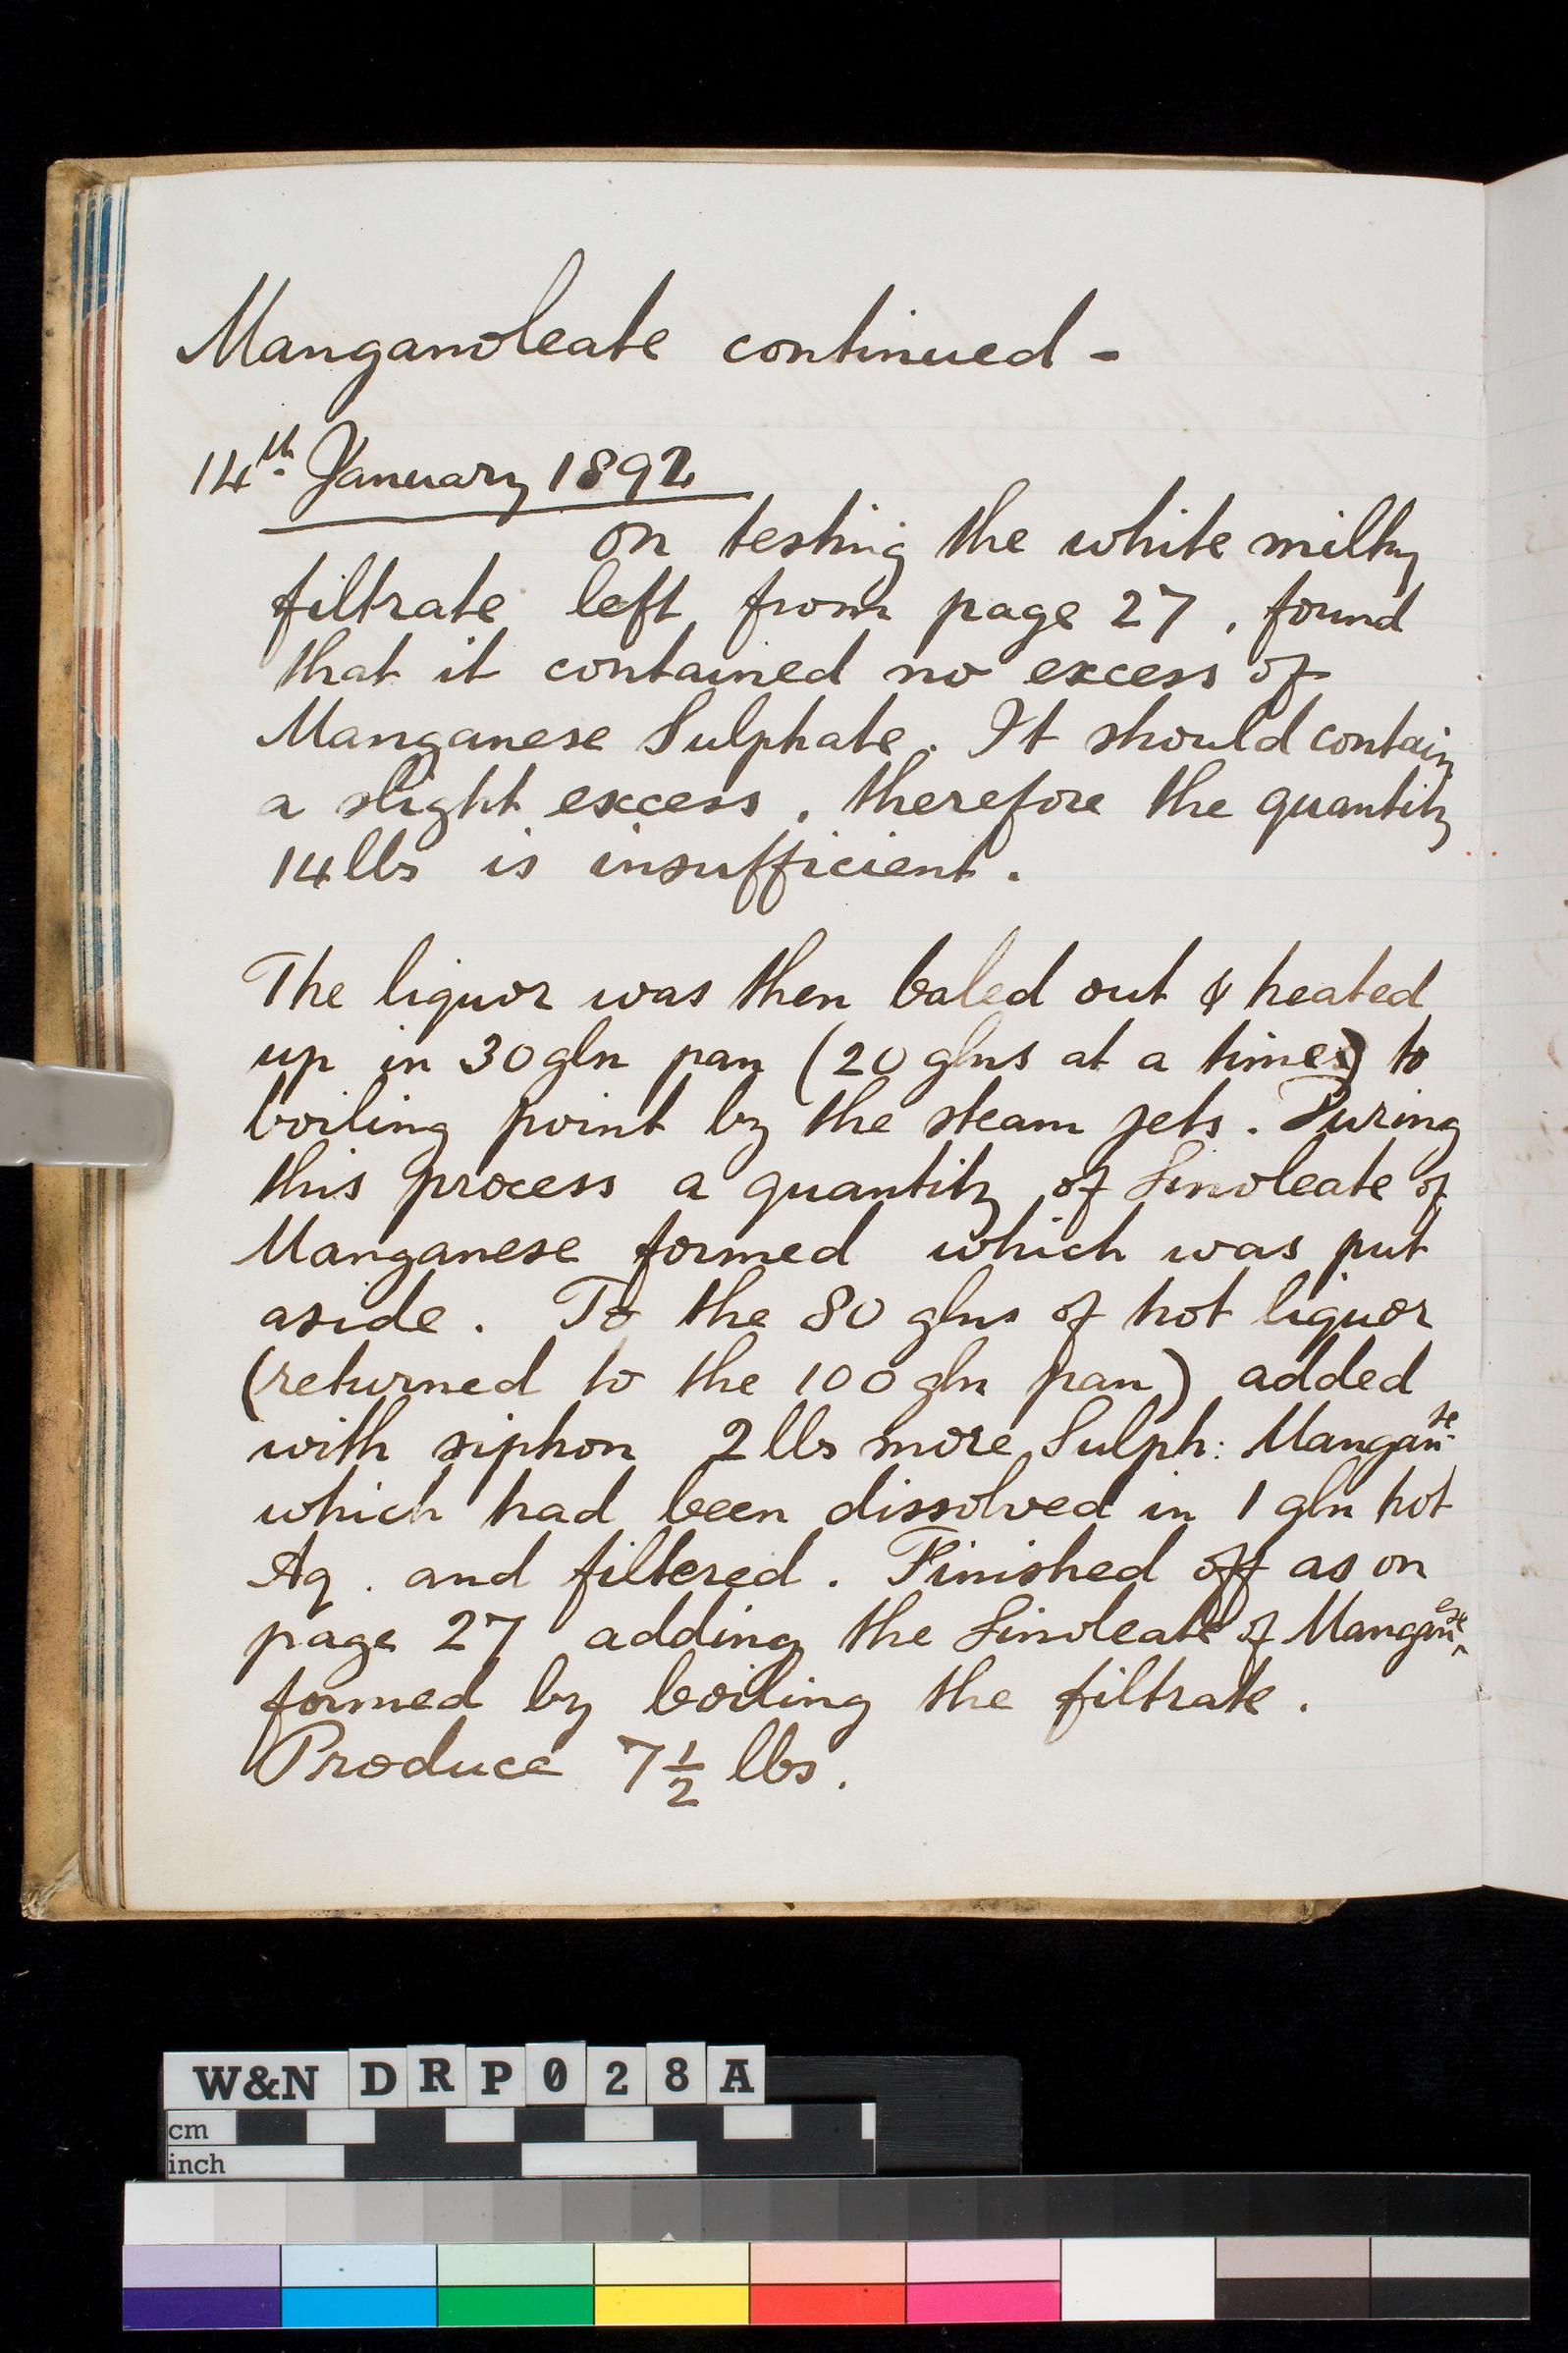 Manganoleate continued -
14th January 1892
on testing the white milky
filtrate left from page 27, found
that it contained no excess of
Manganese Sulphate. It should contain
a slight excess, therefore the quantity
14 lbs is insufficient.
The liquor was then baled out & heated
up in 30 gln pan (20 glns at a time) to
boiling point by the steam jets. During
this process a quantity of Linoleate of
Manganese formed which was put
aside. To the 80 glns of hot liquor
(returned to the 100 gln pan) added
with siphon 2 lbs more Sulph: Manganse
which had been dissolved in 1 gln hot
Aq. and filtered. Finished off as on
page 27 adding the Linoleate of Manganese
formed by boiling the filtrate.
Produce 7 1/2 lbs.
W&N DRP028A
cm
inch